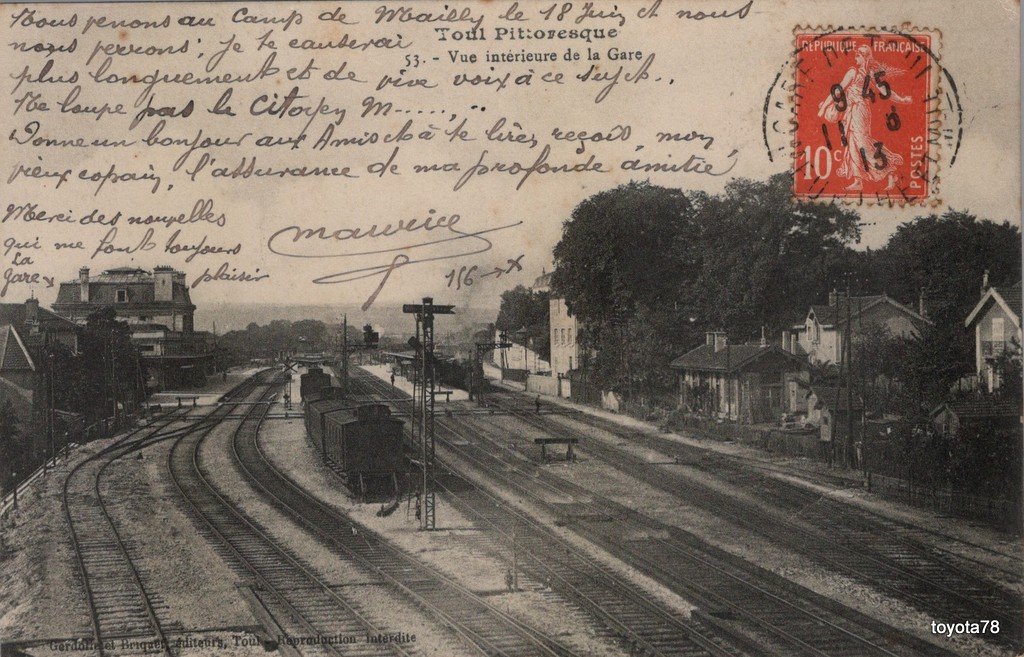 Nous venons au Camp de Mailly le 18 Juin et nous
nous verrons; Je te causerai
plus longuement et de vive voix à ce sujet..
Ne loupe pas le Citoyen M........
Donne un bonjour aux Amis et à te lire, reçois, mon
vieux copain, l'assurance de ma profonde amitié
Merci des nouvelles
qui me font toujours
plaisir
maurice
156 → x
La
gare x
Toul Pittoresque
53. - Vue intérieure de la Gare
REPUBLIQUE FRANÇAISE
10c
POSTES
9 45
11 6
13
Gerdolle et Briquet, éditeurs, Toul - Reproduction Interdite
toyota78